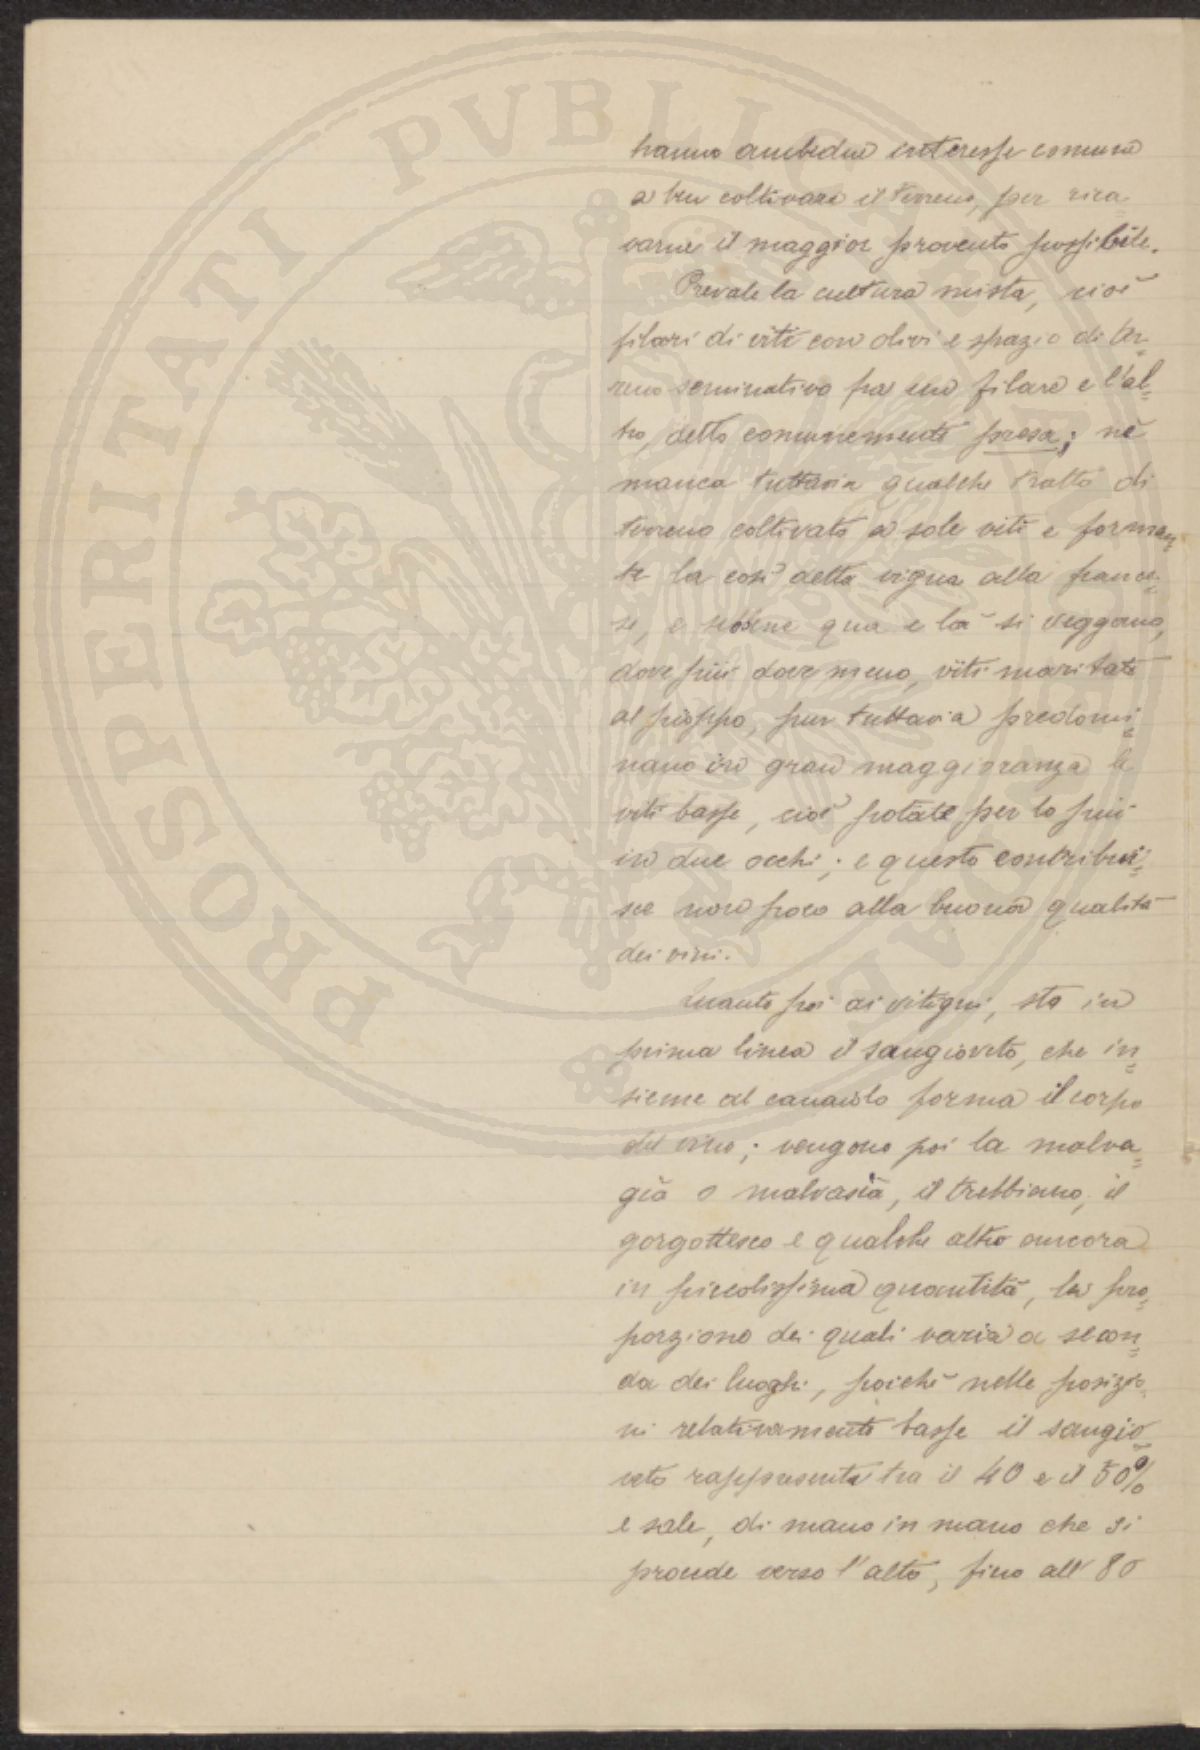 hanno ambedue interesse comune
a ben coltivare il terreno, per rica-
varne il maggior provento possibile.
Prevale la cultura mista, cioè
filari di viti con olivi e spazio di ter=
reno seminativo fra un filare e l'al=
tro, detto comunemente presa; nè
manca tuttavia qualche tratto di
terreno coltivato a sole viti e forman=
te la così detta vigna alla france=
se, e sebbene qua e là si veggano,
dove più dove meno, viti maritate
al pioppo, pur tuttavia predomi=
nano in gran maggioranza le
viti basse, cioè potate per lo più
in due occhi; e questo contribui=
sce non poco alla buona qualità
dei vini.
Quanto poi ai vitigni, sta in
prima linea il sangioveto, che in=
sieme al canaiolo forma il corpo
del vino; vengono poi la malva=
gia o malvasia, il trebbiano, il
gorgottesco e qualche altro ancora
in piccolissima quantità, la pro=
porzione dei quali varia a secon=
da dei luoghi, poichè nelle posizio=
ni relativamente basse il sangio=
veto rappresenta tra il 40 e il 50%
e sale, di mano in mano che si
procede verso l'alto, fino all'80
PROSPERITATI PVBLICAE AVGENDAE